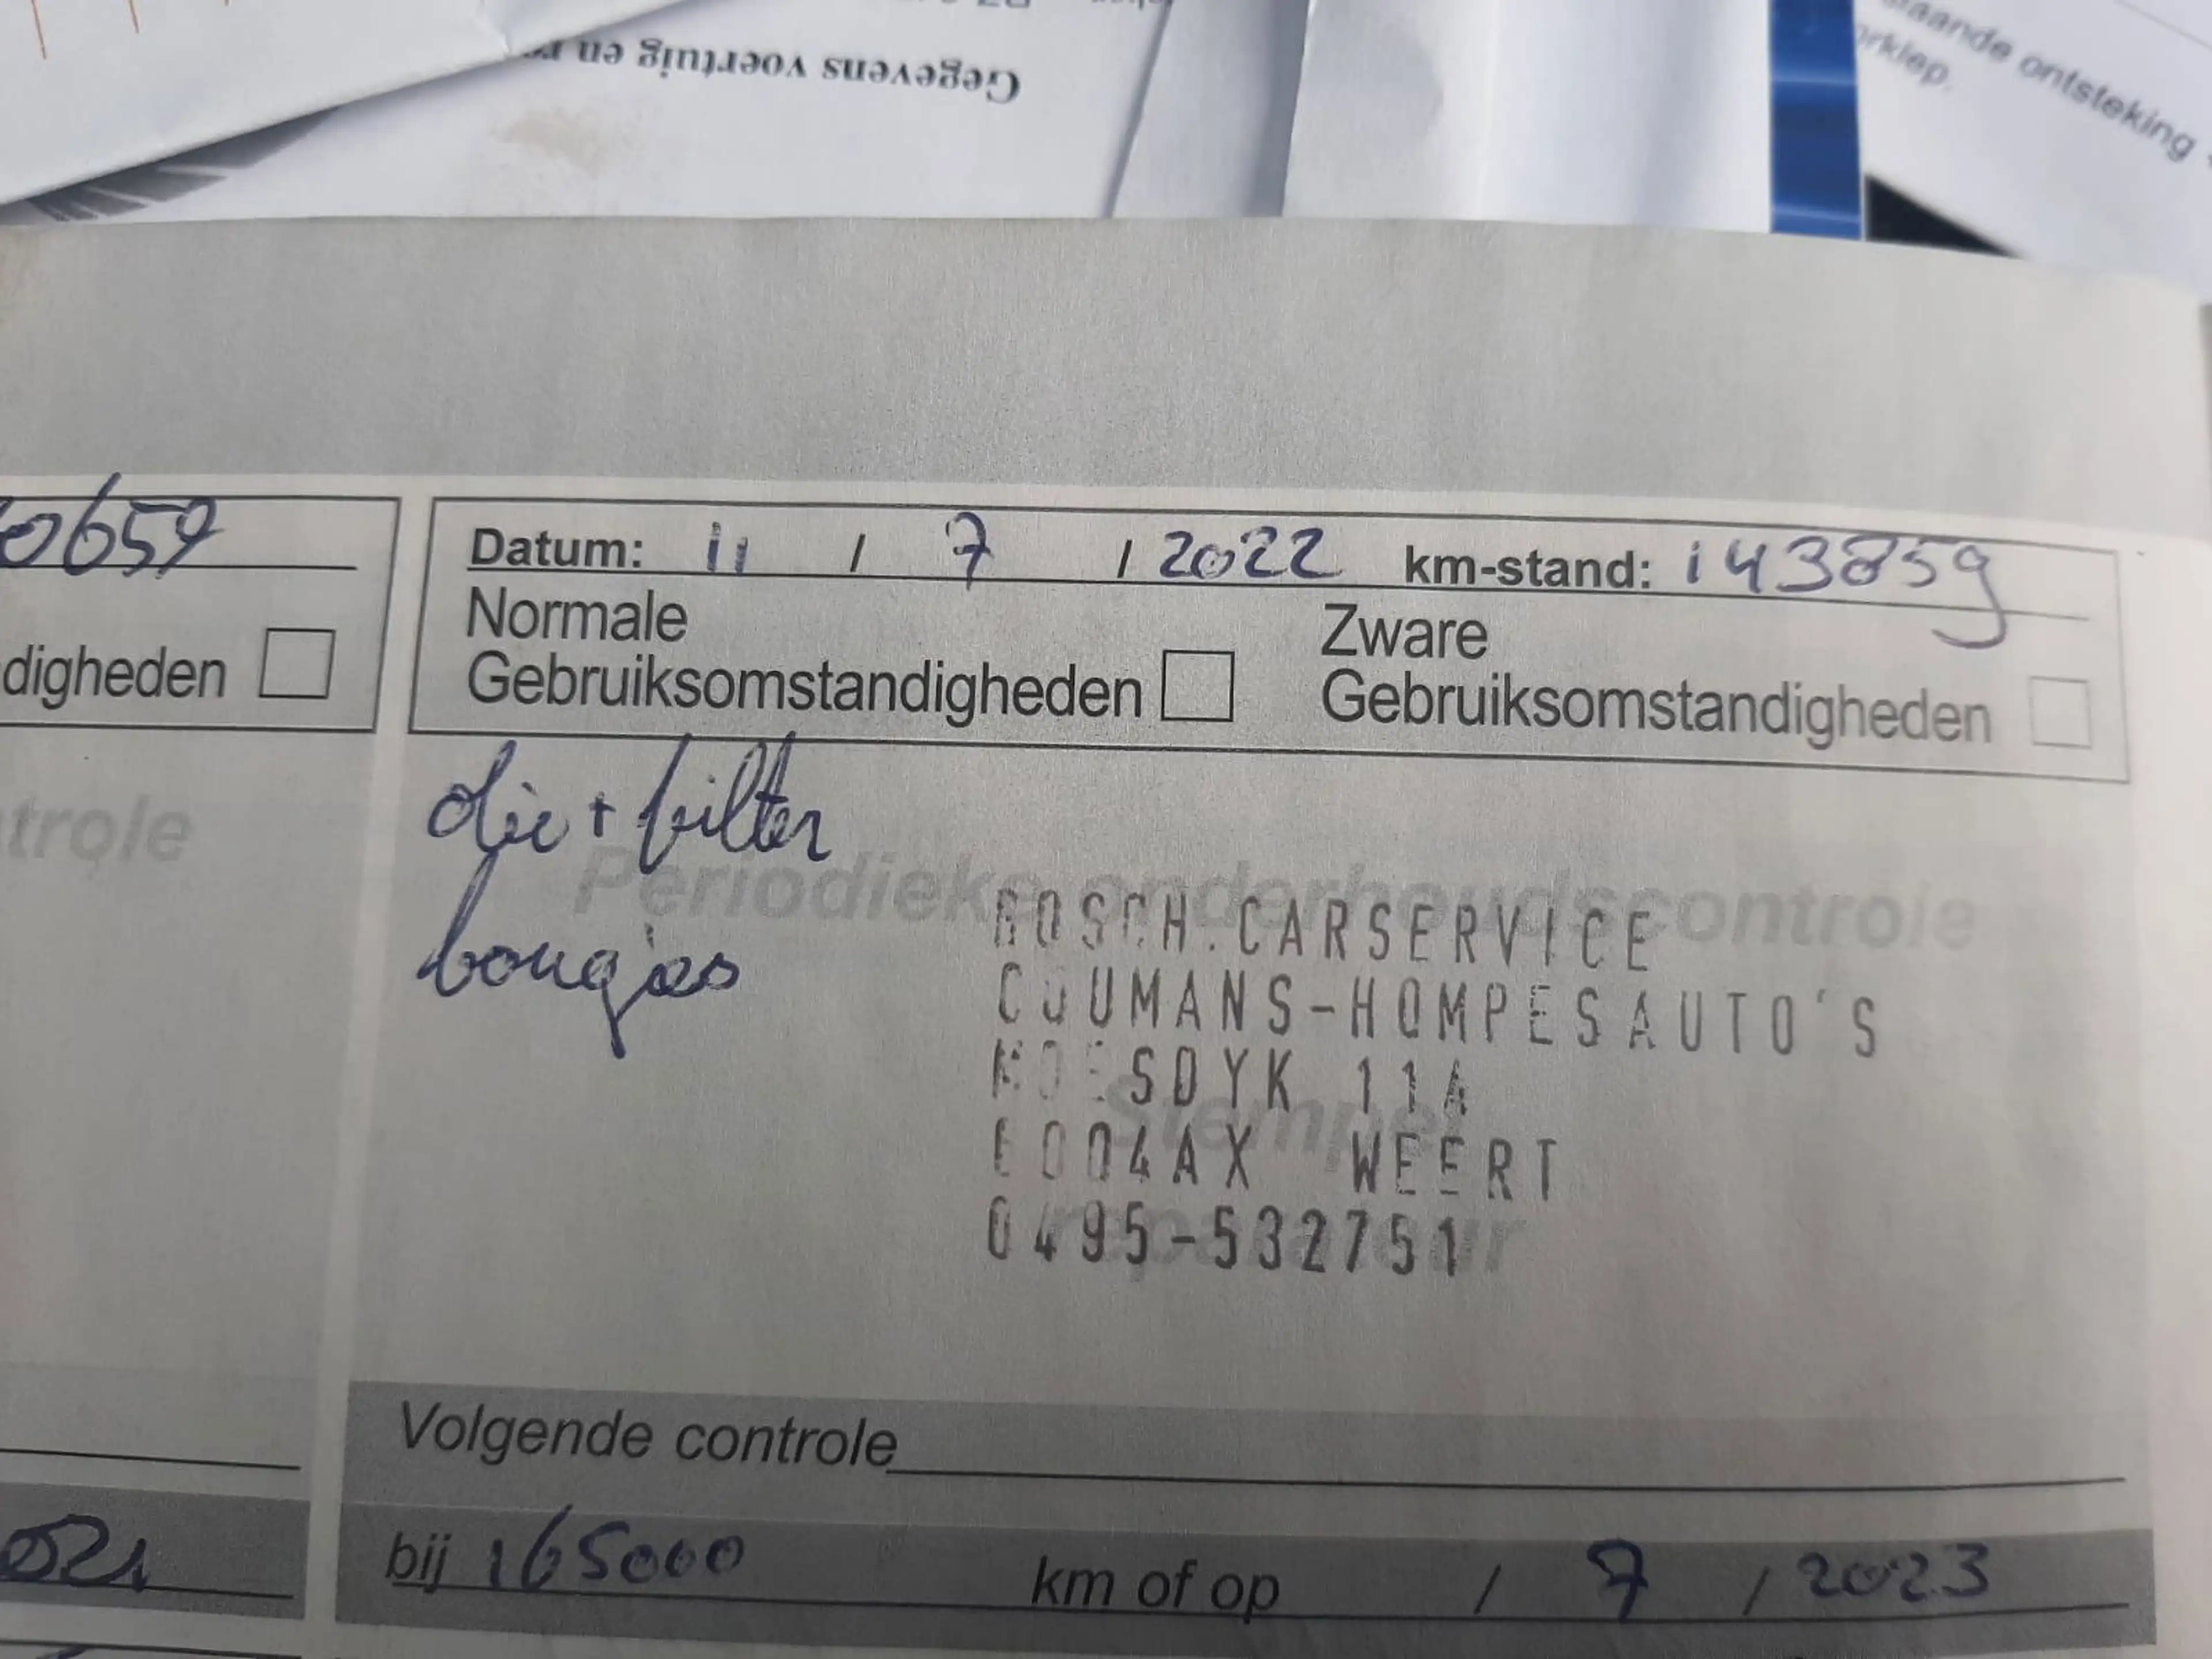 Gegevens voertuig en
aande ontsteking
rklep.
0659
Datum: 11 / 7 / 2022 km-stand: 143859
Normale
Gebruiksomstandigheden
Zware
Gebruiksomstandigheden
digheden
trole
olie + filter
bougies
Periodieke onderhoudscontrole
BOSCH.CARSERVICE
COUMANS-HOMPESAUTO'S
SDYK 11A
Stempel
6004AX WEERT
0495-532751
Volgende controle
021
bij 165000 km of op / 7 / 2023